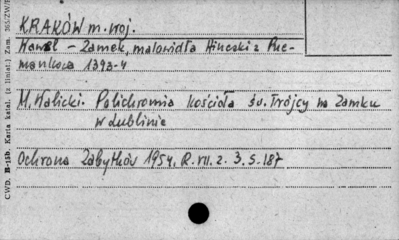 KRAKÓW m. woj.
Wawel - Zamek, malowidła Hineski z Prze-
mankowa 1393-4
M. Walicki. Polichromia kościoła św. Trójcy na Zamku
w Lublinie
Ochrona Zabytków 1954. R. VII. z. 3. s. 187
CWD. B-15b. Karta katal. (z liniat.) Zam. 365/ZW/P